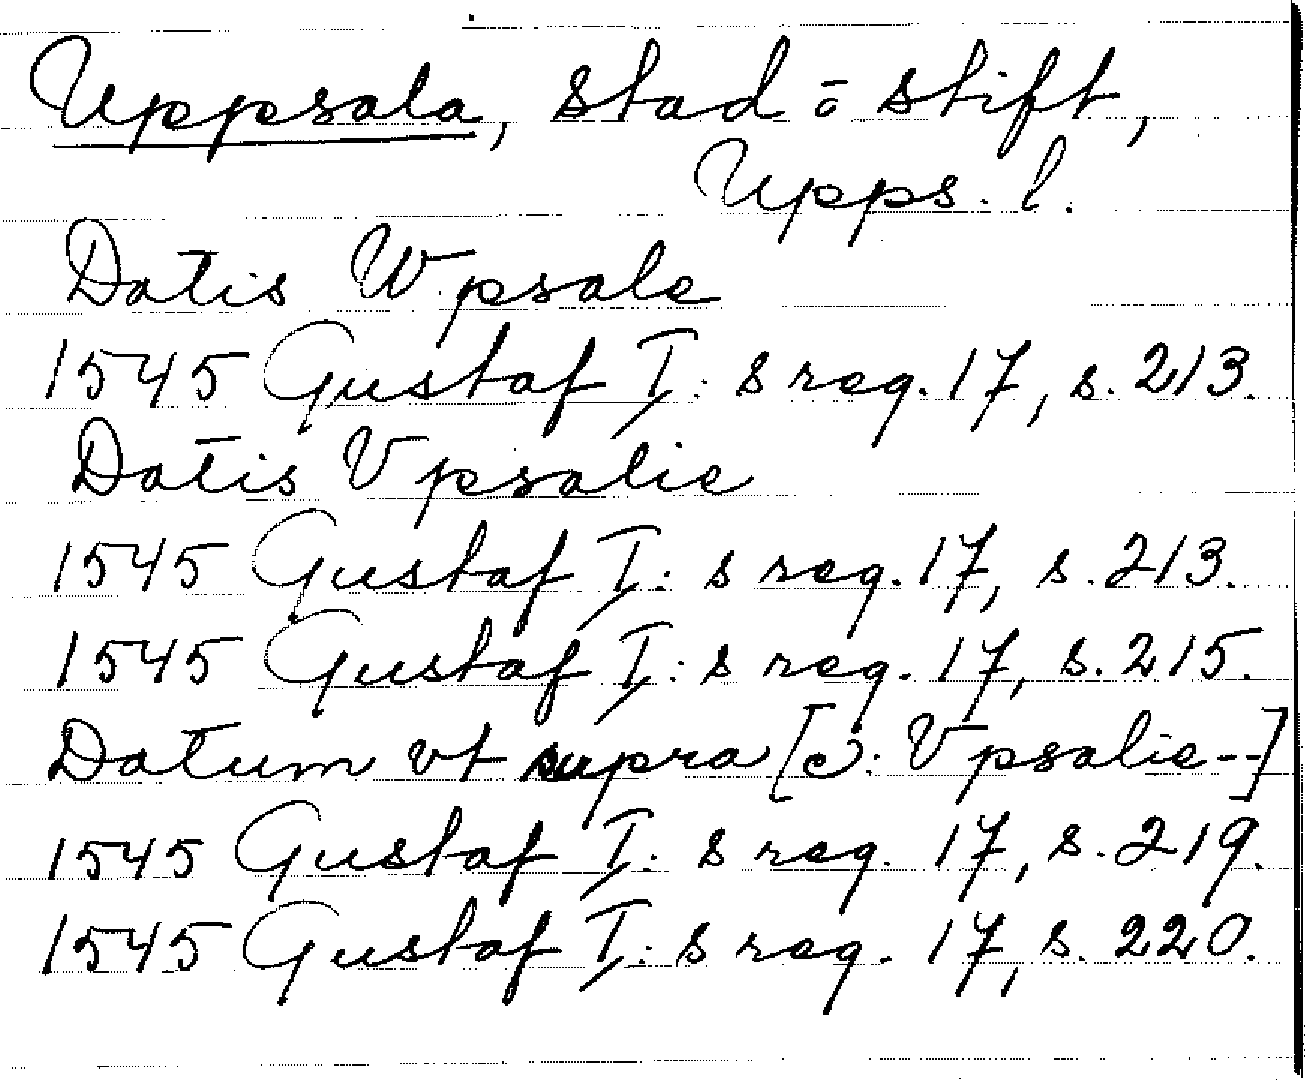 Uppsala, stad o stift,
Upps. l.
Datis Wpsale
1545 Gustaf I: s reg. 17, s. 213.
Datis Vpsalie
1545 Gustaf I: s reg. 17, s. 213.
1545 Gustaf I: s reg. 17, s. 215.
Datum vt supra [ɔ: Vpsalie--]
1545 Gustaf I: s reg. 17, s. 219.
1545 Gustaf I: s reg. 17, s. 220.